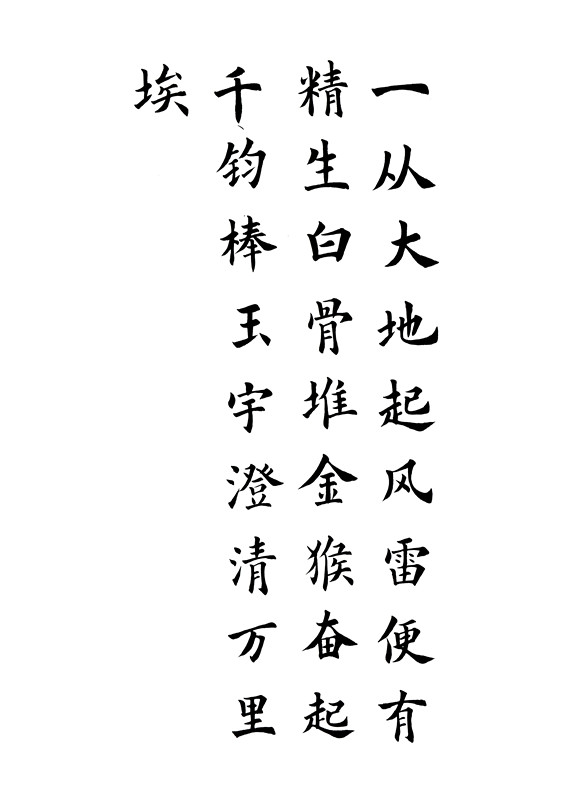 一从大地起风雷便有
精生白骨堆金猴奋起
千钧棒玉宇澄清万里
埃